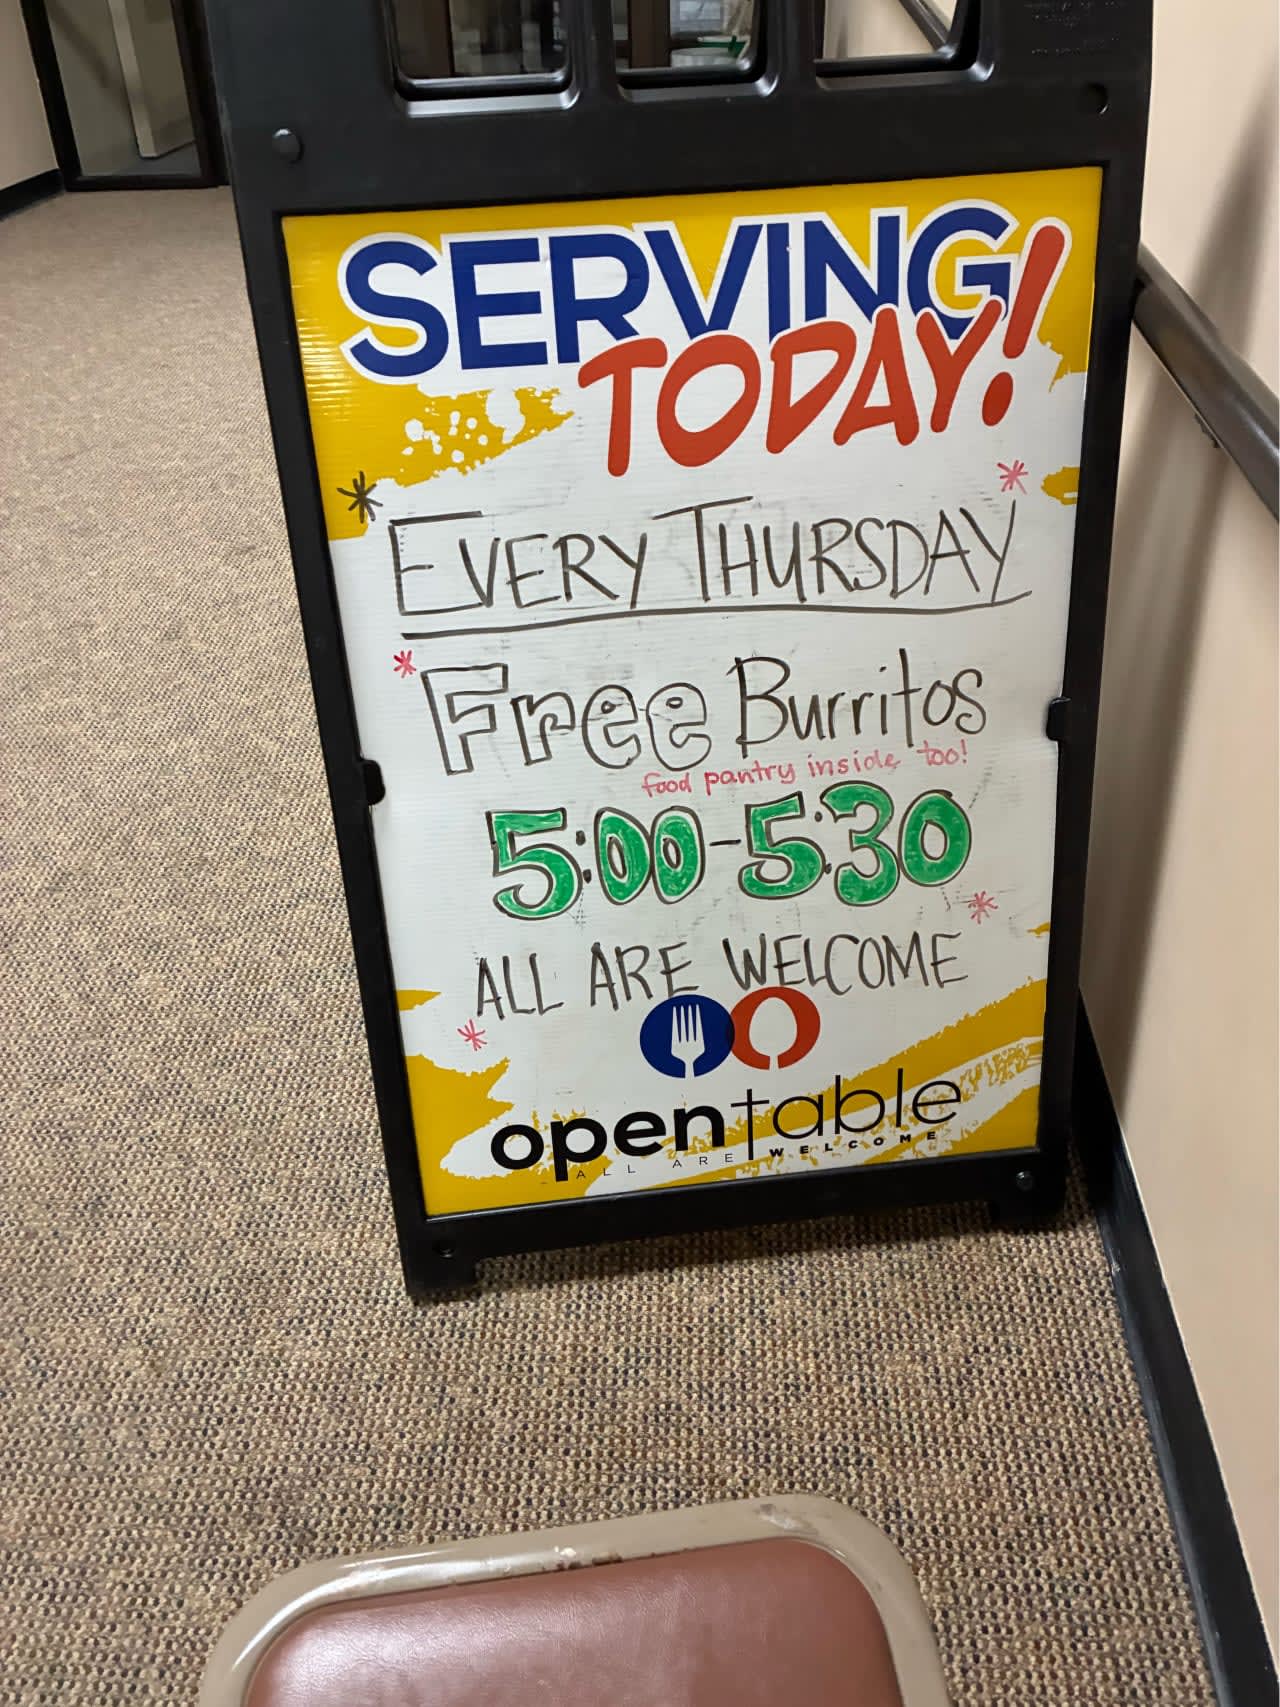 SERVING
TODAY!
EVERY THURSDAY
Free Burritos
food pantry inside too!
5:00-5:30
ALL ARE WELCOME
opentable
ALL ARE WELCOME